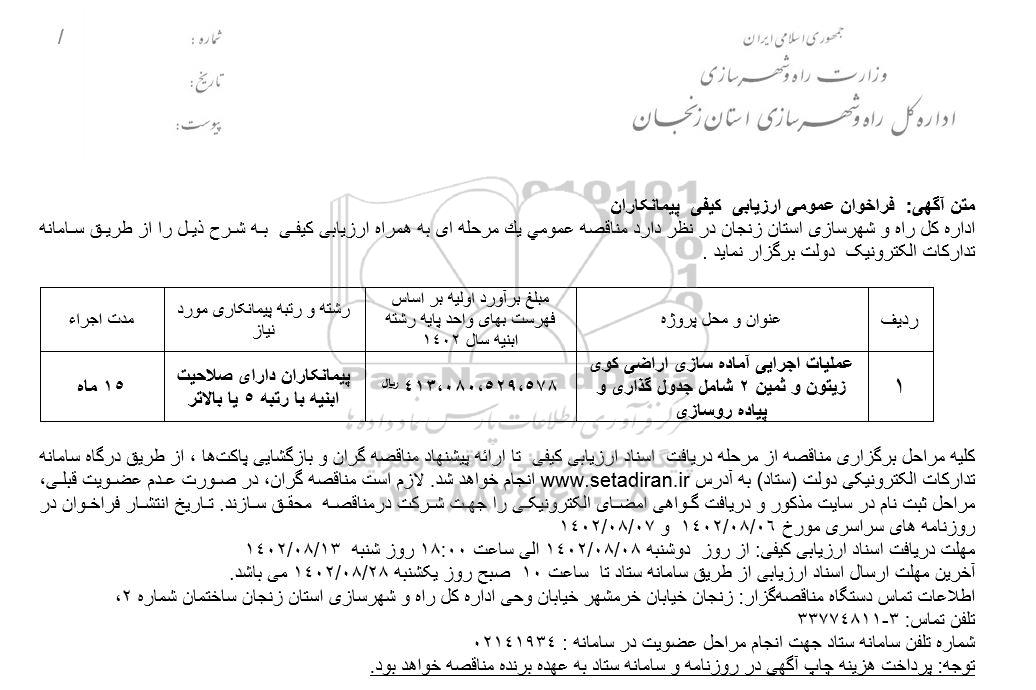 جمهوری اسلامی ایران
وزارت راه و شهرسازی
اداره کل راه و شهرسازی استان زنجان
شماره : /
تاریخ:
پیوست:
متن آگهی: فراخوان عمومی ارزیابی کیفی پیمانکاران
اداره کل راه و شهرسازی استان زنجان در نظر دارد مناقصه عمومي يك مرحله ای به همراه ارزیابی کیفی به شرح ذیل را از طریق سامانه
تدارکات الکترونیک دولت برگزار نماید .
ردیف
عنوان و محل پروژه
مبلغ برآورد اولیه بر اساس
فهرست بهای واحد پایه رشته
ابنیه سال ۱۴۰۲
رشته و رتبه پیمانکاری مورد
نیاز
مدت اجراء
۱
عملیات اجرایی آماده سازی اراضی کوی
زیتون و ثمین ۲ شامل جدول گذاری و
پیاده روسازی
۴۱۳،۰۸۰،۵۲۹،۵۷۸ ریال
پیمانکاران دارای صلاحیت
ابنیه با رتبه ۵ یا بالاتر
۱۵ ماه
ParsNamadData
مرکز فرآوری اطلاعات پارس نماد داده ها
کلیه مراحل برگزاری مناقصه از مرحله دریافت اسناد ارزیابی کیفی تا ارائه پیشنهاد مناقصه گران و بازگشایی پاکت‌ها ، از طریق درگاه سامانه
تدارکات الکترونیکی دولت (ستاد) به آدرس www.setadiran.ir انجام خواهد شد. لازم است مناقصه گران، در صورت عدم عضویت قبلی،
مراحل ثبت نام در سایت مذکور و دریافت گواهی امضای الکترونیکی را جهت شرکت درمناقصه محقق سازند. تاریخ انتشار فراخوان در
روزنامه های سراسری مورخ ۱۴۰۲/۰۸/۰۶ و ۱۴۰۲/۰۸/۰۷
مهلت دریافت اسناد ارزیابی کیفی: از روز دوشنبه ۱۴۰۲/۰۸/۰۸ الی ساعت ۱۸:۰۰ روز شنبه ۱۴۰۲/۰۸/۱۳
آخرین مهلت ارسال اسناد ارزیابی از طریق سامانه ستاد تا ساعت ۱۰ صبح روز یکشنبه ۱۴۰۲/۰۸/۲۸ می باشد.
اطلاعات تماس دستگاه مناقصه‌گزار: زنجان خیابان خرمشهر خیابان وحی اداره کل راه و شهرسازی استان زنجان ساختمان شماره ۲،
تلفن تماس: ۳-۳۳۷۷۴۸۱۱
شماره تلفن سامانه ستاد جهت انجام مراحل عضویت در سامانه : ۰۲۱۴۱۹۳۴
توجه: پرداخت هزینه چاپ آگهی در روزنامه و سامانه ستاد به عهده برنده مناقصه خواهد بود.